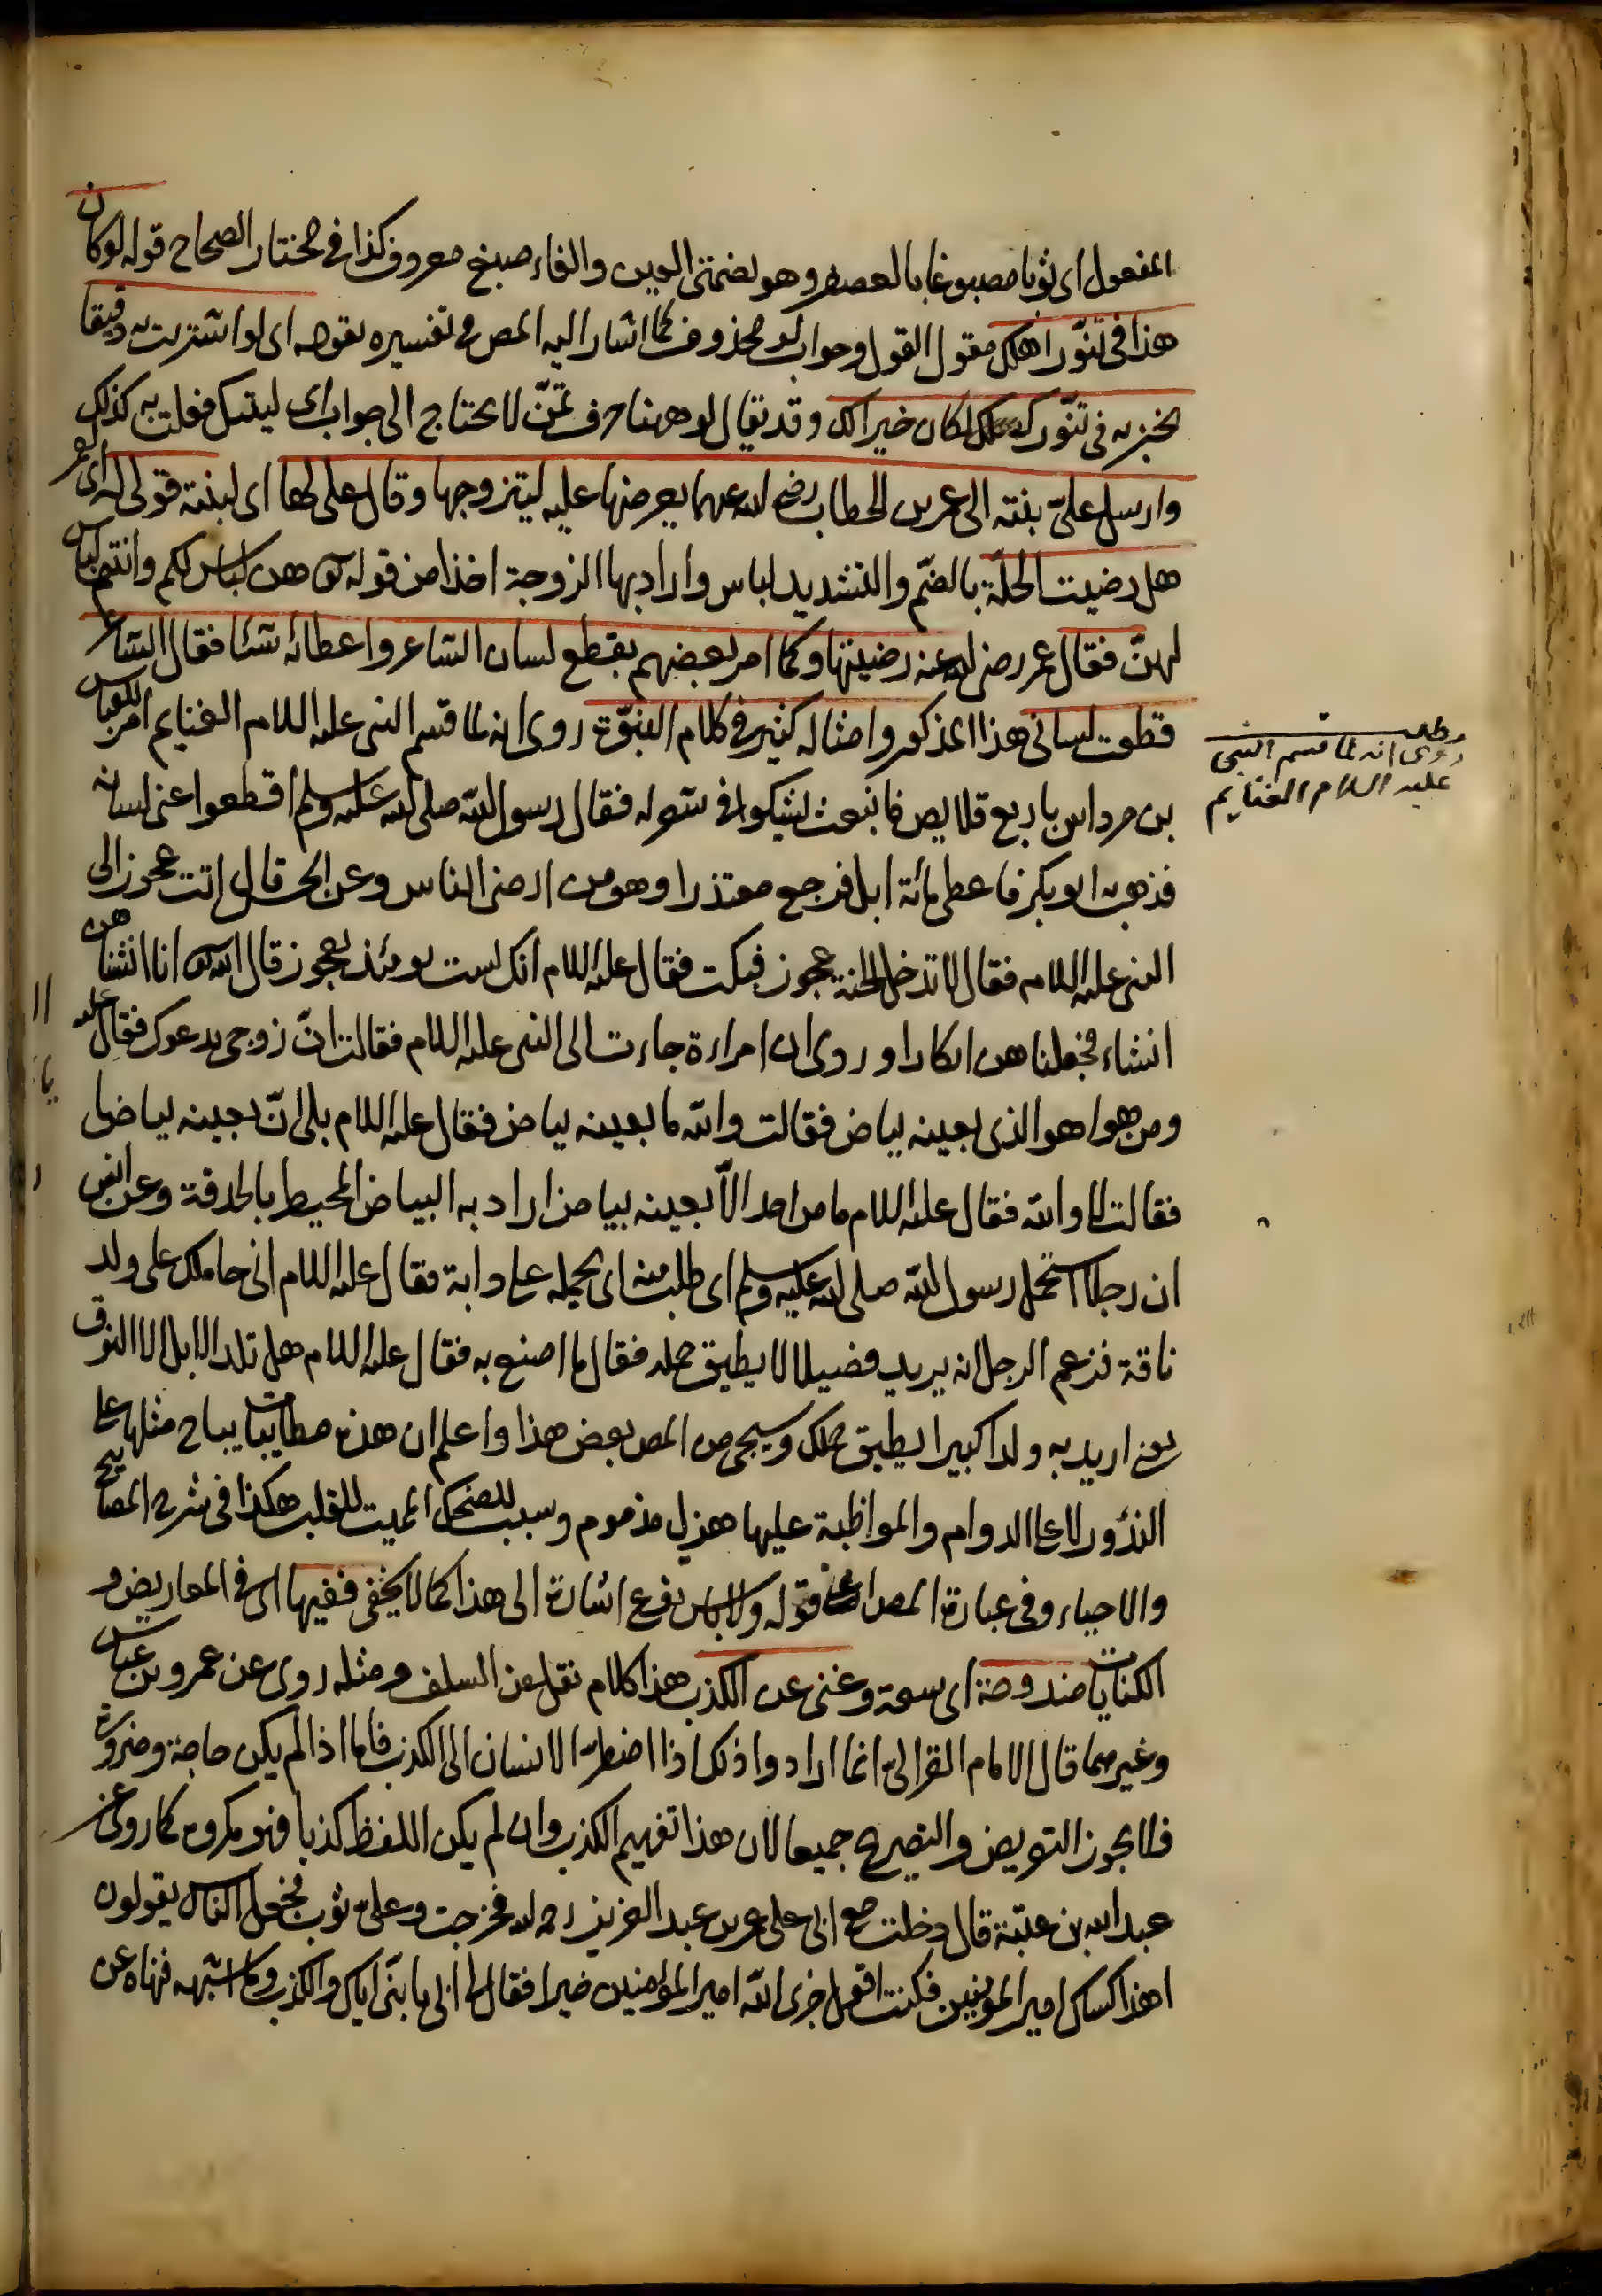 المفعول اى ثوبا مصبوغا بالعصفر وهو بضمتى العين والفاء صبغ معروف كذا فى مختار الصحاح قوله لو كان
هذا فى تنّور اهلك مقول القول وجواب لو محذوف كما اشار اليه المص فى تفسيره بقوله اى لو اشتريت به دقيقا
تخبزبه فى تنّورك لكان خيرا لك وقد يقال لو ههنا حرف تمنّ لا يحتاج الى جواب اى ليتك فعلت به كذلك
وارسل علىّ بنته الى عمر بن الخطاب رضى الله عنهما يعرضها عليه ليتزوجها وقال على لها اى لبنته قولى له اى لعمر
هل رضيت الحلّة بالضمّ والتشديد لباس واراد بها الزوجة اخذا من قوله تع هن لباس لكم وانتم لباس
لهنّ فقال عمر رضى الله عنه رضيتها وكما امر بعضهم بقطع لسان الشاعر واعطائه شئا فقال الشاعر
قطعت لسانى هذا المذكور وامثاله كثير فى كلام النبوّة روى انه لما قسم النبى عليه السلام الغنايم امر للعباس
بن مرداس باربع قلايص فانبعث يشكوا فى شعر له فقال رسول الله صلى الله عليه وسلم اقطعوا عنى لسانه
فذهب به ابو بكر فاعطى مائة ابل فرجع معتذرا وهو من ارضى الناس وعن الحسن قال اتت عجوز الى
النبى عليه السلام فقال لا تدخل الجنة عجوز فبكت فقال عليه السلام انك لست يومئذ بعجوز قال الله تع انا انشئناهن
انشاء فجعلناهن ابكارا وروى ان امراءة جاءت الى النبى عليه السلام فقالت انّ زوجى يدعوك فقال عليه
ومن هو اهو الذى بعينه بياض فقالت والله ما بعينه بياض فقال عليه السلام بلى انّ بعينه بياضا
فقالت لا والله فقال عليه السلام ما من احد الاّ بعينه بياض اراد به البياض المحيط بالحدقة وعن انس
ان رجلا استحمل رسول الله صلى الله عليه وسلم اى طلب منه اى يحمله على دابة فقال عليه السلام انى حاملك على ولد
ناقة فزعم الرجل انه يريد فصيلا لا يطيق حمله فقال ما اصنع به فقال عليه السلام هل تلد الابل الا النوق
يعنى اريد به ولدا كبيرا يطيق حملك وسيجى من المص بعض هذا واعلم ان هذه مطايبات يباح مثلها على
الندور لا على الدوام والمواظبة عليها هزل مذموم وسبب للضحك المميت للقلب هكذا فى شرح المصابيح
والاحياء وفى عبارة المص قوله ولا باس نوع اشارة الى هذا كما لا يخفى ففيها اى فى المعاريض و
الكنايات مندوحة اى سعة وغنى عن الكذب هذا كلام نقل عن السلف ومثله روى عن عمر وبن عباس
وغيرهما قال الامام الغزالى انما ارادوا ذلك اذا اضطرّ الانسان الى الكذب فاما اذا لم يكن حاجة وضرورة
فلا يجوز التعريض والتصريح جميعا لان هذا تفهيم الكذب وان لم يكن اللفظ كذبا فهو مكروه كما روى عن
عبد الله بن عتبة قال دخلت مع ابى على عمر بن عبد العزيز رحمه الله فخرجت وعلىّ ثوب فجعل الناس يقولون
اهذا كساك امير المؤمنين فكنت اقول جزى الله امير المؤمنين خيرا فقال لى ابى يا بنىّ اياك والكذب وما اشبهه فنهاه عن
مطلب
روى انه لما قسم النبى
عليه السلام الغنايم